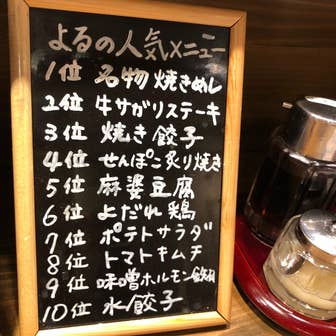 よるの人気メニュー
1位 名物焼きめし
2位 牛サガリステーキ
3位 焼き餃子
4位 せんぽこ炙り焼き
5位 麻婆豆腐
6位 よだれ鶏
7位 ポテトサラダ
8位 トマトキムチ
9位 味噌ホルモン鉄鍋
10位 水餃子